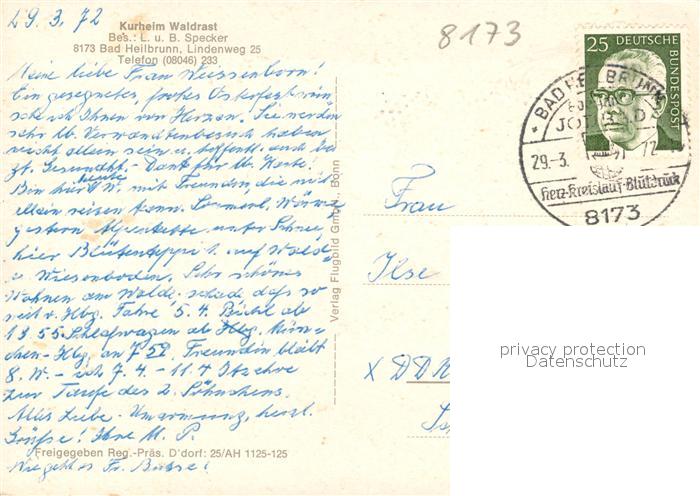 29.3.72
Kurheim Waldrast
Bes.: L. u. B. Specker
8173 Bad Heilbrunn, Lindenweg 25
Telefon (08046) 233
Meine liebe Frau Weissenborn!
Ein gesegnetes, frohes Osterfest wün-
sche ich Ihnen von Herzen. Sie werden
sehr lb. Verwandtenbesuch haben,
nicht allein sein u. hoffentl. auch bei
Gesundht. - Dank für lb. Karte!
Bin hier W. mit Freundin, die nicht
allein reisen kann. Wärme
gestern Alpenkette unter Schnee,
hier Blütenteppi. auf Wald-
u. Wiesenboden. Sehr schönes
Wohnen am Walde, schade daß so
weit v. Hbg. Fahre 5.4. ab
13.55 Schlafwagen ab Mün-
chen - Hbg. an 7 52. Freundin bleibt
8 W. - ich 7.4. - 11.4 Itzehoe
zur Taufe des 2. Söhnchens.
Alles Liebe. Umarmung, herzl.
Grüße! Ihre M. P.
Freigegeben Reg.-Präs. D'dorf: 25/AH 1125-125
Wie geht es Fr. Busse!
Verlag Flugbild GmbH, Bonn
8173
25 DEUTSCHE
BUNDESPOST
BAD HEILBRUNN
JOD BAD
29.-3. 72
Herz-Kreislauf-Blutdruck
8173
Frau
Ilse
X DDR
privacy protection
Datenschutz